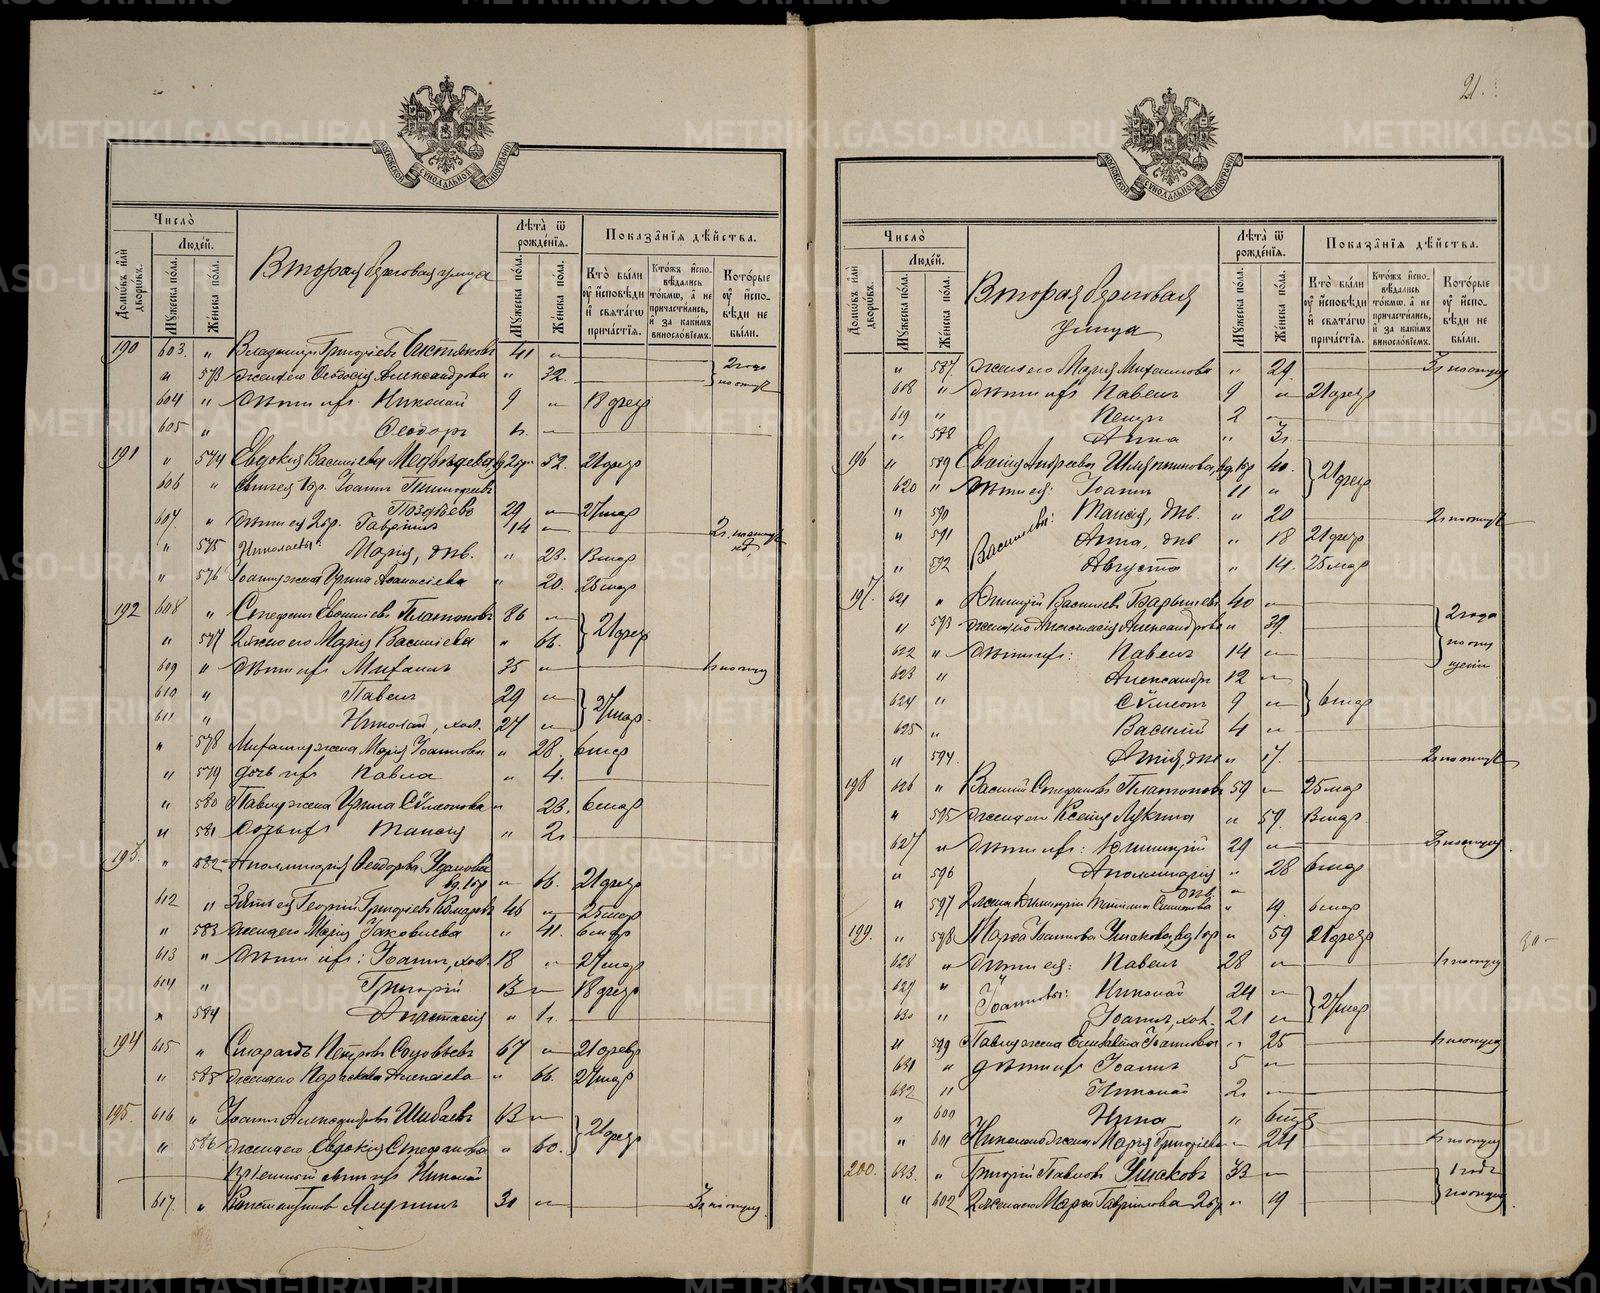 21.
МОСКОВСКОЙ СѴНОДАЛЬНОЙ ТИПОГРАФІИ
Число̀
Людей.
Домѡвъ или дворѡвъ.
Мужеска пола.
Женска пола.
Вторая береговая улица
Лѣта̀ ѿ рожденія.
Мужеска пола.
Женска пола.
Показанія дѣйства.
Кто̀ были ᲂу исповѣди и свѧтагѡ причастія.
Ктожъ исповѣдались токмѡ, а не причастились, и за какимъ винословіемъ.
Которые ᲂу исповѣди не были.
190 603. " Владимиръ Григоріевъ Чистяковъ 41 "
" 573 Жена его Ѳеодосія Александрова " 32. 2 года по опущ
604 " Дѣти ихъ Николай 9 " 18 февр
605 " Ѳеодоръ 1 г. "
191 " 574 Евдокія Васильева Медвѣдева, вд. 2 бр. 52. 21 февр
606 " Сынъ ея 1 бр. Іоаннъ Тимоѳеевъ
29 " 27 мар
607 " Дѣти ея 2 бр. Гавріилъ 14 "
" 575 Николаевы: Марія, дѣв. " 23. 13 мар
" 576 Іоанна жена Ирина Аѳанасіева " 20. 25 мар
192 608 " Стефанъ Платоновъ 86 "
" 577 2 жена его Марія Васильева " 66. 21 февр
609 " Дѣти ихъ Михаилъ 35 " 1 г. по опущ
610 " Павелъ 29 "
611 " Николай, хол. 27 " 27 мар.
" 578 Михаила жена Марія Іоаннова " 28. 6 мар
" 579 Дочь ихъ Павла " 4.
" 580 Павла жена Ирина Сѵмеонова " 23. 6 мар
" 581 Дочь ихъ Таисія " 2 г.
193. " 582 Аполлинарія Ѳеодорова
вд. 1 бр " 66. 21 февр
612 " Зять ея Георгій Григоріевъ Комаровъ 46 " 25 мар
" 583 Жена его Марія Іаковлева " 41.
613 " Дѣти ихъ: Іоаннъ, хол. 18 " 27 мар
614 " Григорій 13 " 18 февр
" 584 Анастасія " 1 г.
194 615 " Петровъ Соловьевъ 67 " 21 февр
" 585 Жена его Параскева Алексіева " 66. 27 мар
195. 616 " Іоаннъ Александровъ Шибаевъ 63 "
" 586 Жена его Евдокія Стефанова " 60. 21 февр
Николай
617. " Константиновъ 31 " 3 г. по опущ.
Число̀
Людей.
Домѡвъ или дворѡвъ.
Мужеска пола.
Женска пола.
Вторая береговая
улица
Лѣта̀ ѿ рожденія.
Мужеска пола.
Женска пола.
Показанія дѣйства.
Кто̀ были ᲂу исповѣди и свѧтагѡ причастія.
Ктожъ исповѣдались токмѡ, а не причастились, и за какимъ винословіемъ.
Которые ᲂу исповѣди не были.
" 587 Жена его Марія Михаилова " 29. 3 г. по опущ
618 " Дѣти ихъ Павелъ 9 " 21 февр
619 " Петръ 2 "
" 588 Анна " 3 г.
196 " 589 Андреева вд. 1 бр 40.
620 " Дѣти ея: Іоаннъ 11 " 21 февр
" 590 Васильевы: Таисія, дѣв. " 20 2 г. по опущ
" 591 Анна, дѣв " 18 21 февр
" 592 Августа " 14. 25 мар
197. 621 " Димитрій Васильевъ Барышевъ 40 "
" 593 Жена его Анастасія Александрова " 39. 2 года
622 " Дѣти ихъ: Павелъ 14 " по опу
623 " Александръ 12 " щенію
624 " Сѵмеонъ 9 " 6 мар
625 " Василій 4 "
" 594. дѣв " 17. 2 г. по опущ
198 626 " Василій Стефановъ Платоновъ 59 " 25 мар
" 595 Жена его Ксенія Лукина " 59. 13 мар.
627 " Дѣти ихъ: Димитрій 29 " 2 г. по опущ
" 596 Аполлинарія " 28 6 мар
дѣв.
" 597 2 жена Димитрія " 19. 6 мар
199. " 598 Марѳа Іоаннова Ушакова, вд 1 бр " 59 21 февр
628 " Дѣти ея: Павелъ 28 " 1 г. по опущ
629 " Іоанновы: Николай 24 "
630 " Іоаннъ, хол. 21 " 27 мар
" 599 Павла жена Елисавета Іоаннова " 25 1 г. по опущ
631 " Дѣти ихъ Іоаннъ 5 "
632 " Николай 2 "
" 600 Нина "
" 601 Николая жена Марія Григоріева " 24 1 г. по опущ
200. 633. " Григорій Павловъ Ушаковъ 33 " 1 годъ
" 602 2 жена его Марѳа Гавріилова 2 бр " 19 по опущ